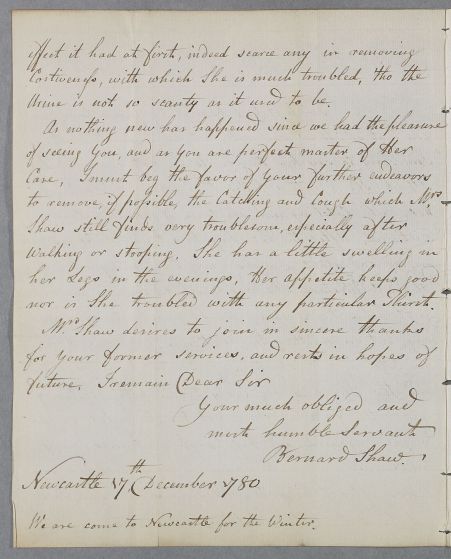 effect it had at first, indeed scarce any in removing
Costiveness, with which She is much troubled, tho the
Urine is not so scanty as it used to be.
As nothing new has happened since we had the pleasure
of seeing You, and as you are perfect master of Her
Case, I must beg the favor of Your further endeavors
to remove, if possible, the Catching and Cough which Mrs
Shaw still finds very troublesom, especially after
Walking or stooping. She has a little swelling in
her Legs in the evenings, Her appetite keeps good
nor is She troubled with any particular Thirst.
Mrs Shaw desires to join in sincere thanks
for Your former services, and rests in hopes of
future. I remain Dear Sir
Your much obliged and
most humble Servant
Bernard Shaw.
Newcastle 17th December 1780
We are come to Newcastle for the Winter.